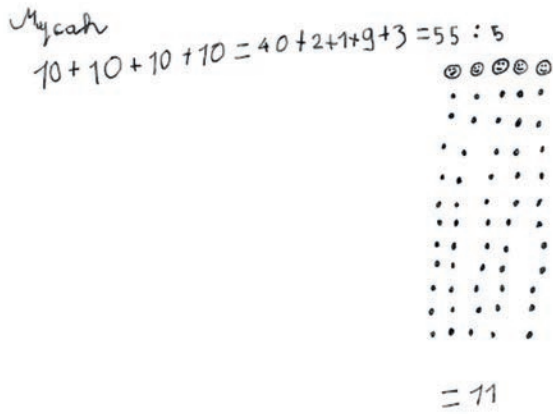 Mycah
10 + 10 + 10 + 10 = 40 + 2 + 1 + 9 + 3 = 55 : 5
= 11